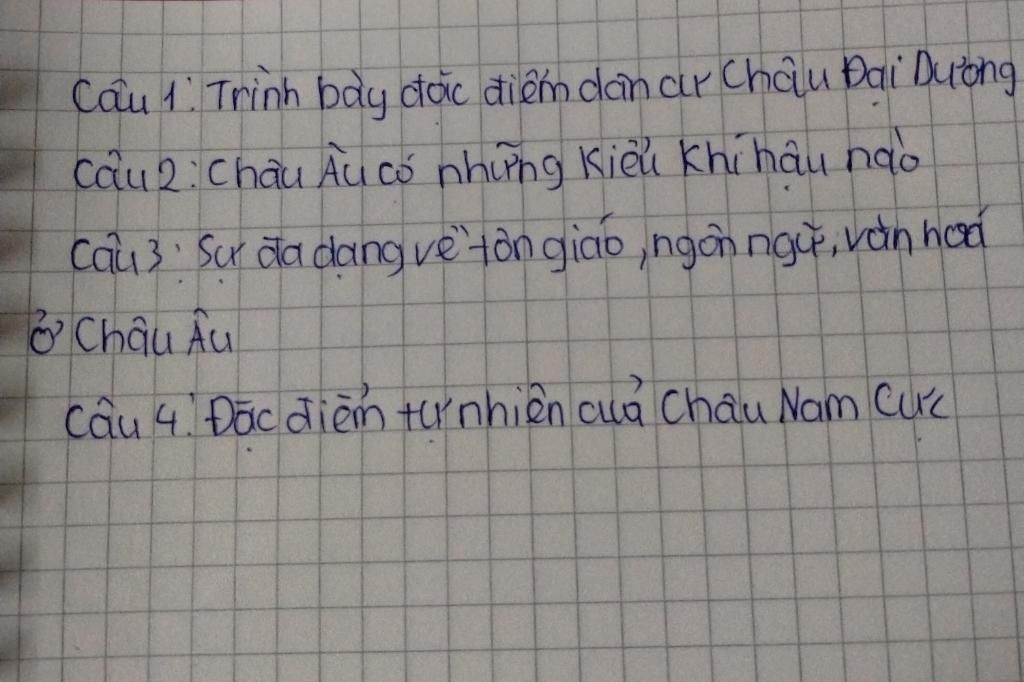 Câu 1: Trình bày đặc điểm dân cư Châu Đại Dương
Câu 2: Châu Âu có những kiểu khí hậu nào
Câu 3: Sự đa dạng về tôn giáo, ngôn ngữ, văn hoá
ở Châu Âu
Câu 4: Đặc điểm tự nhiên của Châu Nam Cực